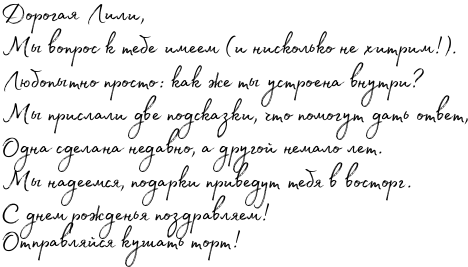 Дорогая Лили,
Мы вопрос к тебе имеем (и нисколько не хитрим!).
Любопытно просто: как же ты устроена внутри?
Мы прислали две подсказки, что помогут дать ответ,
Одна сделана недавно, а другой немало лет.
Мы надеемся, подарки приведут тебя в восторг.
С днем рожденья поздравляем!
Отправляйся кушать торт!